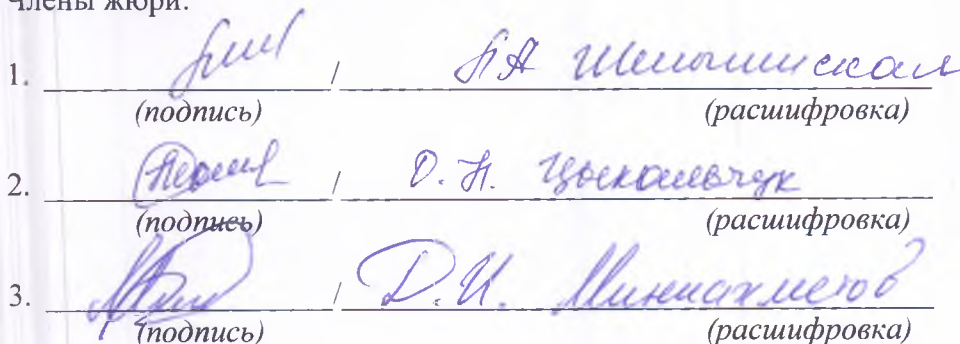 Члены жюри:
1. /
(подпись) (расшифровка)
2. / О. Н. Цыкальчук
(подпись) (расшифровка)
3. / Д. И. Миннахметов
(подпись) (расшифровка)